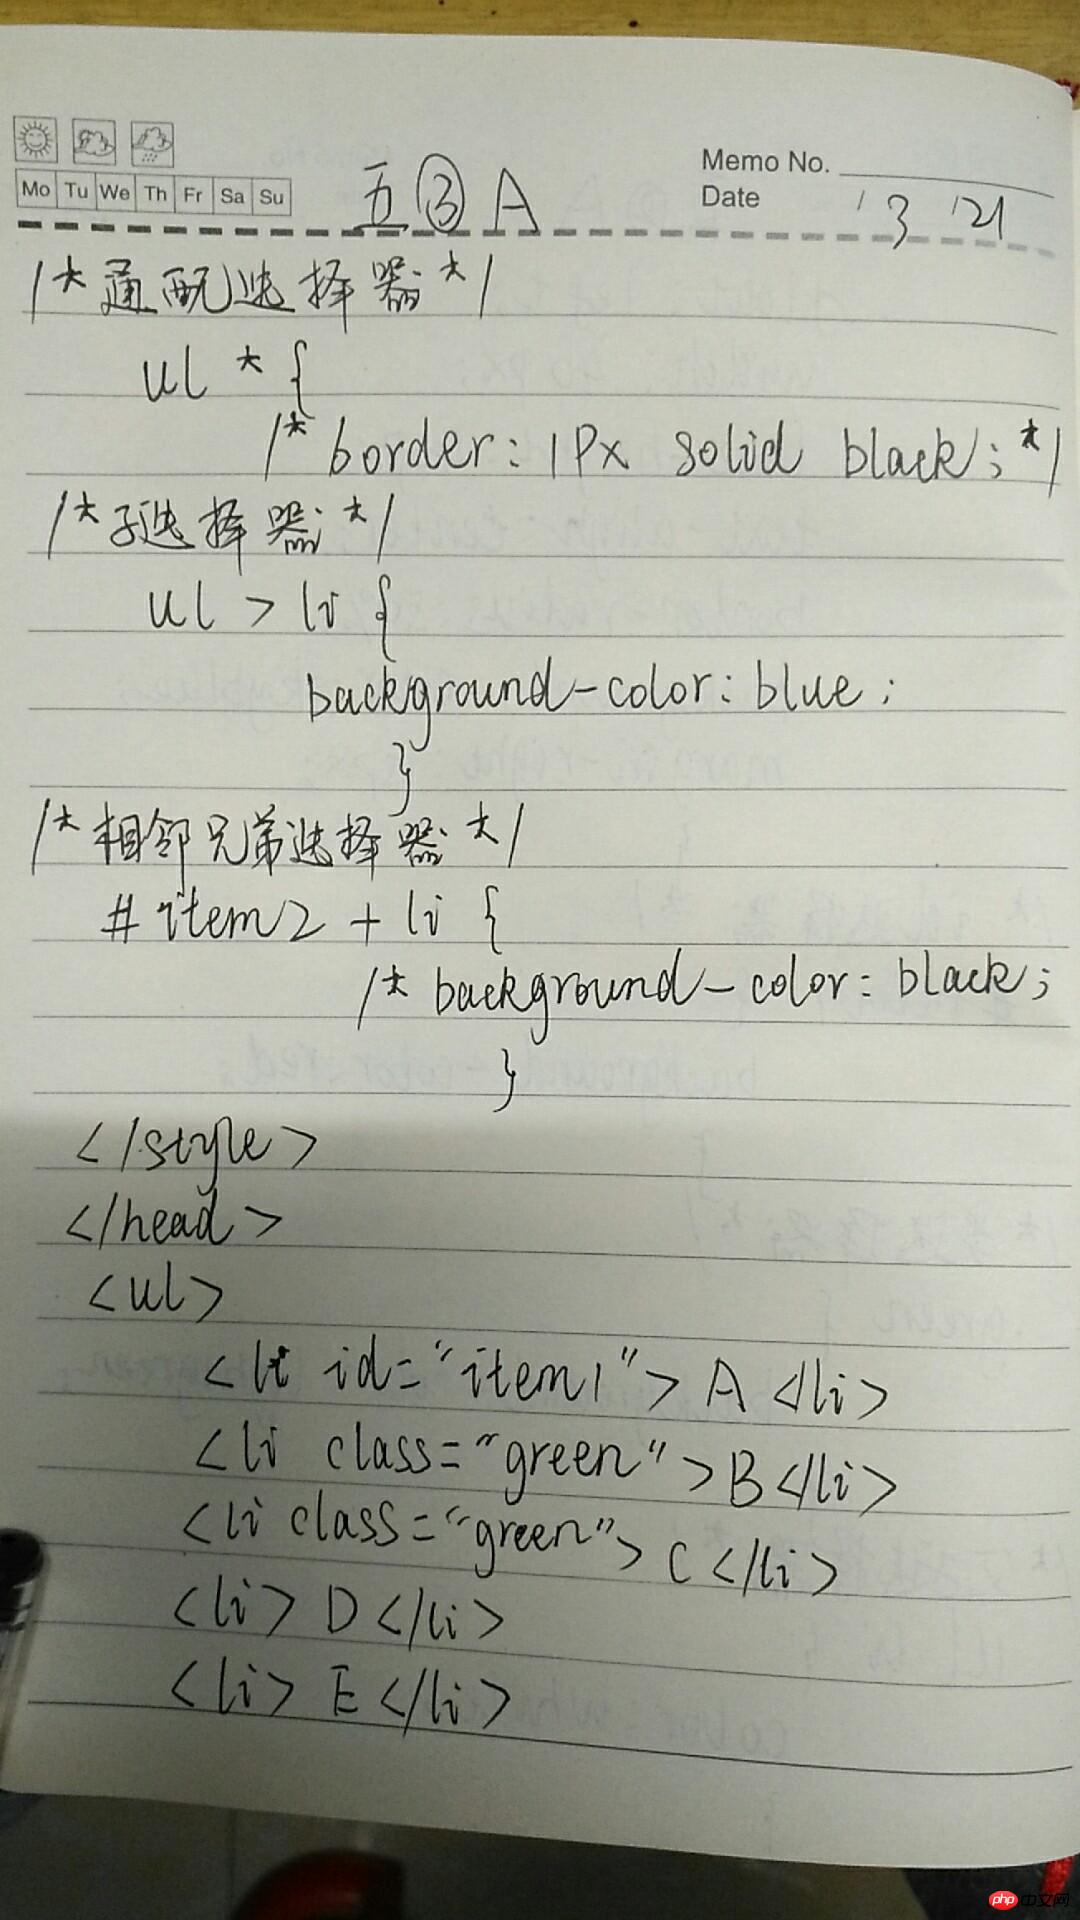 Mo Tu We Th Fr Sa Su
Memo No.
Date 3 '21
五③A
/*通配选择器*/
ul * {
/* border: 1Px solid black; */
/*子选择器*/
ul > li {
background-color: blue;
}
/*相邻兄弟选择器*/
#item2 + li {
/* background-color: black;
}
</style>
</head>
<ul>
<li id="item1">A</li>
<li class="green">B</li>
<li class="green">C</li>
<li>D</li>
<li>E</li>
php中文网